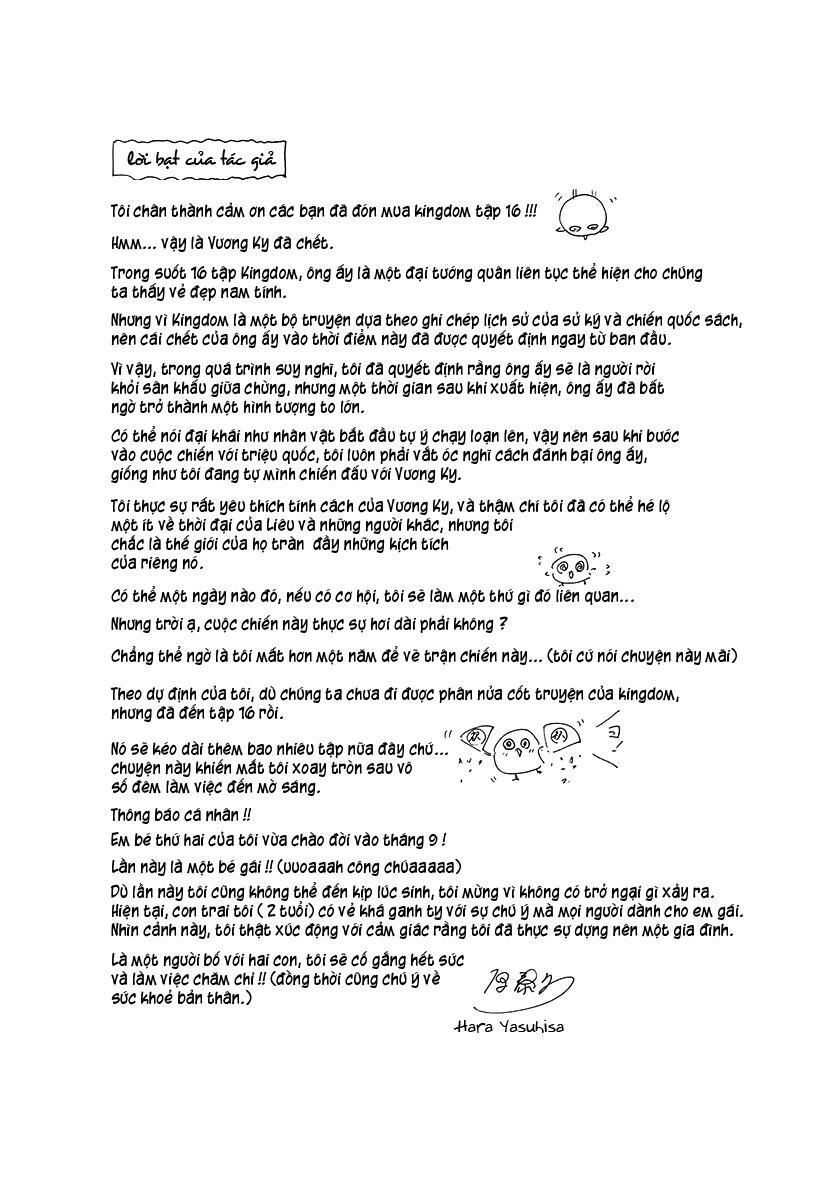 Lời bạt của tác giả
Tôi chân thành cảm ơn các bạn đã đón mua kingdom tập 16 !!!
Hmm... vậy là Vương Kỵ đã chết.
Trong suốt 16 tập Kingdom, ông ấy là một đại tướng quân liên tục thể hiện cho chúng
ta thấy vẻ đẹp nam tính.
Nhưng vì Kingdom là một bộ truyện dựa theo ghi chép lịch sử của sử ký và chiến quốc sách,
nên cái chết của ông ấy vào thời điểm này đã được quyết định ngay từ ban đầu.
Vì vậy, trong quá trình suy nghĩ, tôi đã quyết định rằng ông ấy sẽ là người rời
khỏi sân khấu giữa chừng, nhưng một thời gian sau khi xuất hiện, ông ấy đã bất
ngờ trở thành một hình tượng to lớn.
Có thể nói đại khái như nhân vật bắt đầu tự ý chạy loạn lên, vậy nên sau khi bước
vào cuộc chiến với triệu quốc, tôi luôn phải vắt óc nghĩ cách đánh bại ông ấy,
giống như tôi đang tự mình chiến đấu với Vương Kỵ.
Tôi thực sự rất yêu thích tính cách của Vương Kỵ, và thậm chí tôi đã có thể hé lộ
một ít về thời đại của Liêu và những người khác, nhưng tôi
chắc là thế giới của họ tràn đầy những kịch tích
của riêng nó.
Có thể một ngày nào đó, nếu có cơ hội, tôi sẽ làm một thứ gì đó liên quan...
Nhưng trời ạ, cuộc chiến này thực sự hơi dài phải không ?
Chẳng thể ngờ là tôi mất hơn một năm để vẽ trận chiến này... (tôi cứ nói chuyện này mãi)
Theo dự định của tôi, dù chúng ta chưa đi được phân nửa cốt truyện của kingdom,
nhưng đã đến tập 16 rồi.
Nó sẽ kéo dài thêm bao nhiêu tập nữa đây chứ...
chuyện này khiến mắt tôi xoay tròn sau vô
số đêm làm việc đến mờ sáng.
Thông báo cá nhân !!
Em bé thứ hai của tôi vừa chào đời vào tháng 9 !
Lần này là một bé gái !! (uuoaaah công chúaaaaa)
Dù lần này tôi cũng không thể đến kịp lúc sinh, tôi mừng vì không có trở ngại gì xảy ra.
Hiện tại, con trai tôi ( 2 tuổi) có vẻ khá ganh tỵ với sự chú ý mà mọi người dành cho em gái.
Nhìn cảnh này, tôi thật xúc động với cảm giác rằng tôi đã thực sự dựng nên một gia đình.
Là một người bố với hai con, tôi sẽ cố gắng hết sức
và làm việc chăm chỉ !! (đồng thời cũng chú ý về
sức khoẻ bản thân.)
Hara Yasuhisa